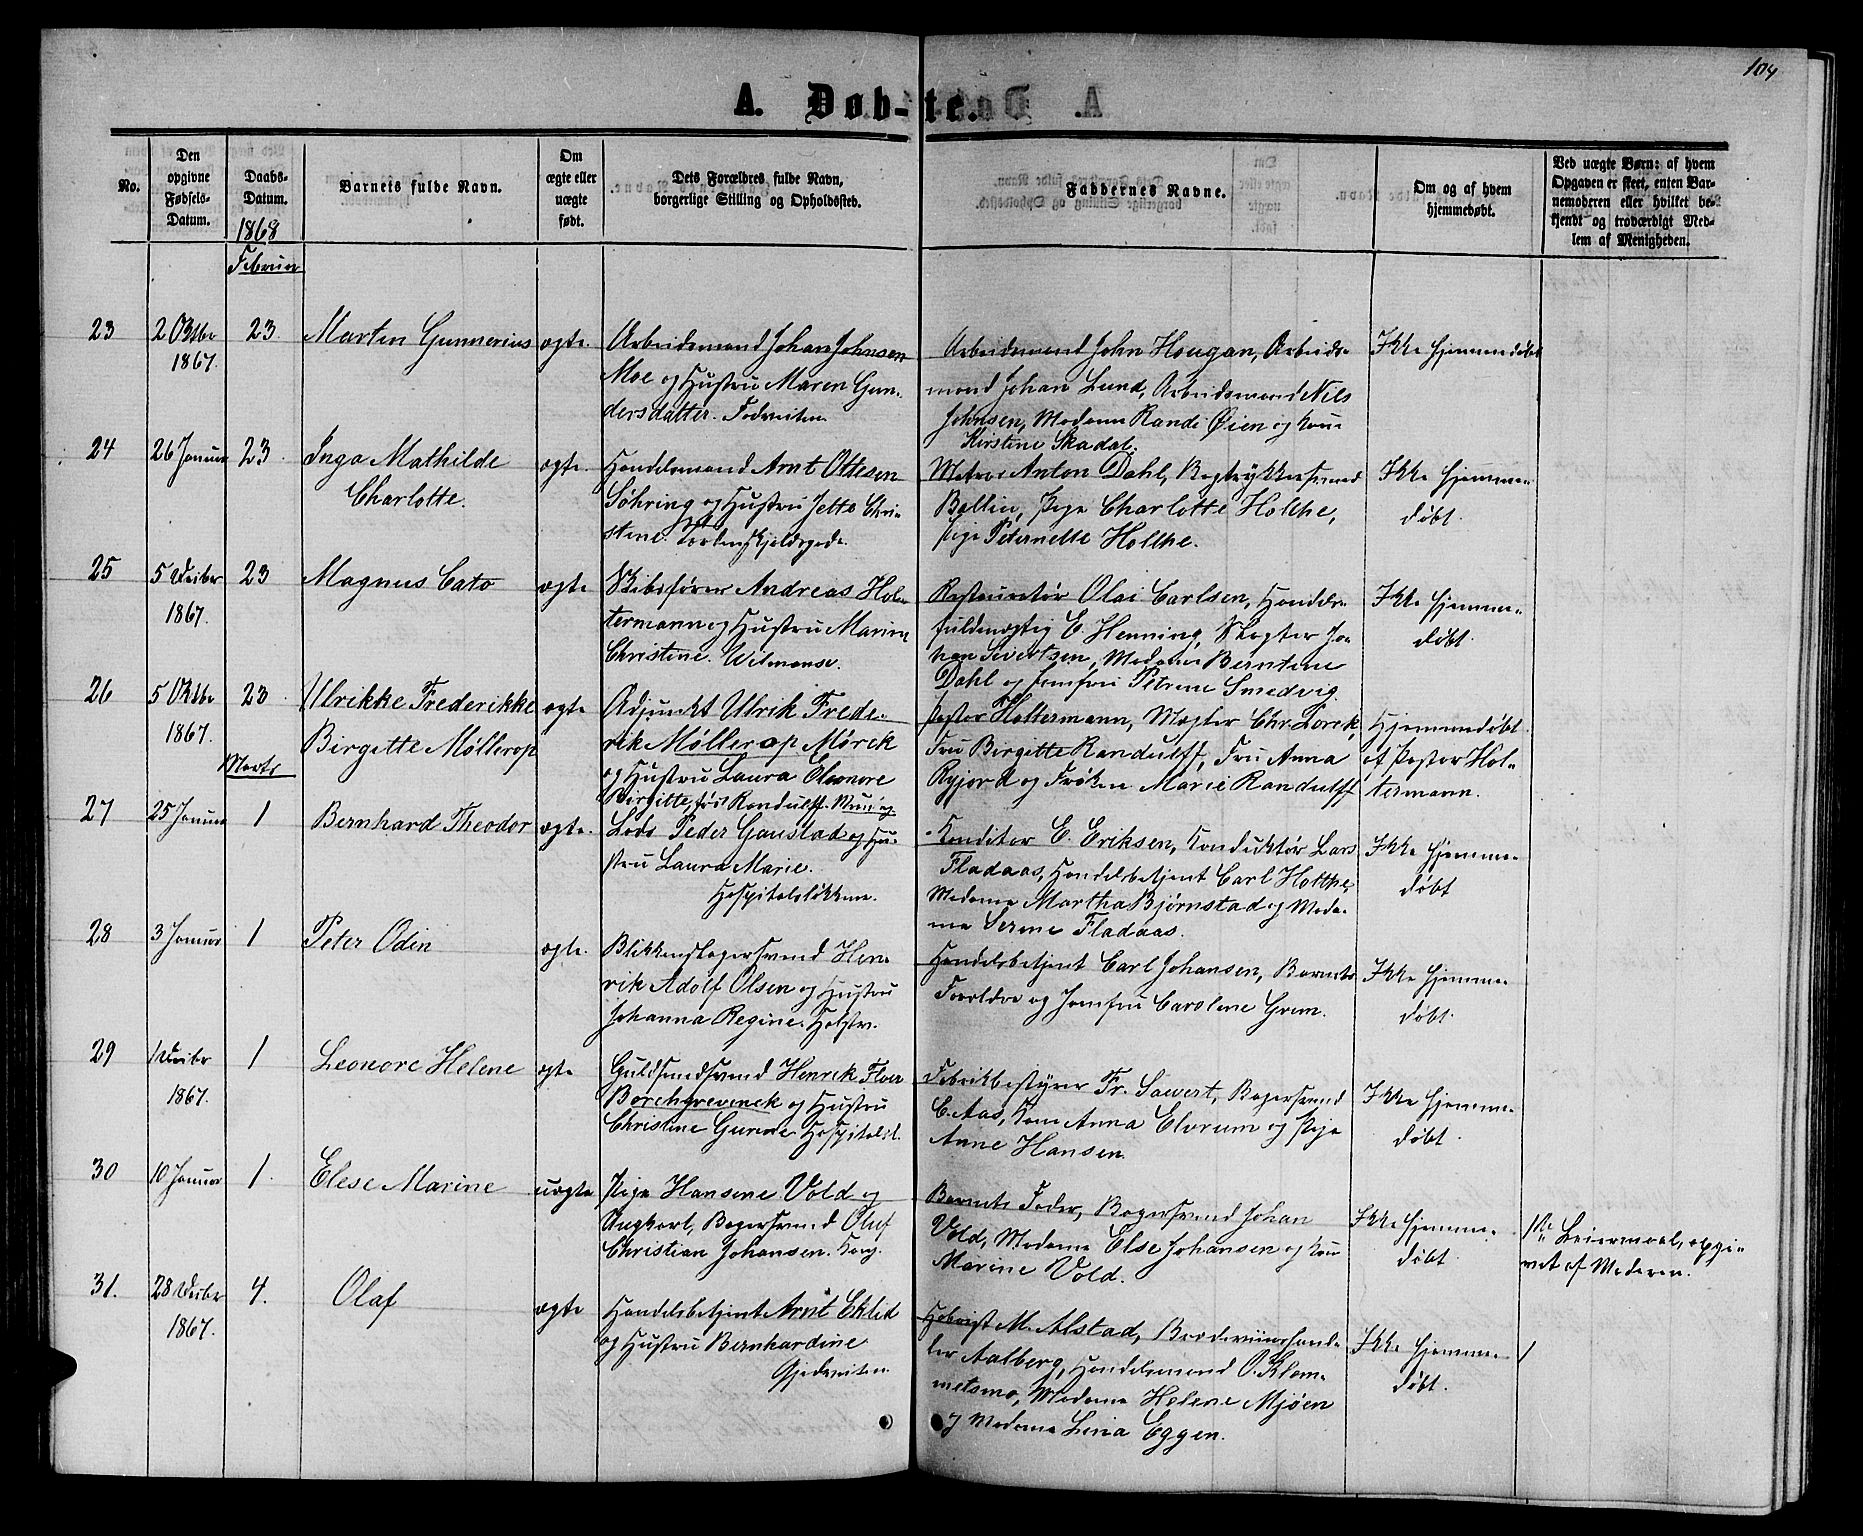 104
A. Døb-te.
No.
Den opgivne Fødsels-Datum.
Daabs-Datum.
Barnets fulde Navn.
Om ægte eller uægte født.
Dets Forældres fulde Navn, borgerlige Stilling og Opholdssted.
Faddernes Navne.
Om og af hvem hjemmedøbt.
Ved uægte Børn: af hvem Opgaven er skeet, enten Barnemoderen eller hvilket bekjendt og troværdigt Medlem af Menigheden.
1868
Februar
23 2 Oktbr 23 Martin Gunnerius ægte. Arbeidsmand Johan Johnsen
1867. Moe og Hustru Maren Gun-
dersdatter.
Arbeidsmand John Hougan, Arbeids-
mand Johan Lund, Arbeidsmand Nils
Johnsen, Madame Rande Øien og Kone
Kirstine Skadal.
Ikke hjemmedøbt
24 26 Januar 23 Inga Mathilde ægte. Handelsmand Arnt Ottesen
Charlotte. Søhring og Hustru Jette Chri-
stine.
Matros Anton Dahl, Bogtrykkersvend
Bollin, Pige Charlotte Holthe,
Pige Peternette Holthe.
Ikke hjemme-
døbt.
25 5 Decbr 23 Magnus Cato ægte Skibsfører Andreas Hol-
1867. termann og Hustru Marine
Christine.
Restauratør Olai Carlsen, Handels-
fuldmægtig E. Henning, Slagter Jo-
han Sivertsen, Madame Berntine
Dahl og Jomfru Petrine Smedvig.
Ikke hjemme-
døbt.
26 5 Oktbr 23 Ulrikke Frederikke ægte Adjunkt Ulrik Frede-
1867. Birgitte Møllerop rik Møllerop Mörck
og Hustru Laura Eleonore
Birgitte, født Randulff.
Pastor Holtermann, Mægler Chr. Lorck,
Fru Birgitte Randulff, Fru Anna
Rygjord og Frøken Marie Randulff
Hjemmedøbt
af Pastor Hol-
termann.
Marts
27 25 Januar 1 Bernhard Theodor ægte. Lods Peder Gaustad og Hu-
stru Laura Marie.
Hospitalsløkkene.
Konditor E. Eriksen, Konduktør Lars
Fladaas, Handelsbetjent Carl Holthe,
Madame Martha Bjørnstad og Mada-
me Serine Fladaas.
Ikke hjemme-
døbt
28 3 Januar 1 Peter Odin ægte. Blikkenslagersvend Hen-
rik Adolf Olsen og Hustru
Johanna Regine.
Handelsbetjent Carl Johansen, Barnets
Forældre og Jomfru Caroline Grim.
Ikke hjemme-
døbt.
29 1 Decbr 1 Leonore Helene ægte Guldsmedsvend Henrik Floer
1867. Borchgrevenck og Hustru
Christine Gurine. Hospitalsl.
Fabrikbestyrer Fr. Sawert, Bagersvend
C. Aas, Kone Anna Elvrum og Pige
Anne Hansen.
Ikke hjemme-
døbt.
30 10 Januar 1. Elese Marine uægte Pige Hansine Vold og
Ungkarl, Bagersvend Oluf
Christian Johansen.
Barnets Fader, Bagersvend Johan
Vold, Madame Else Johansen og Kone
Marine Vold.
Ikke hjemme-
døbt
1ste Leiermaal, opgi-
vet af Moderen.
31. 28 Decbr 4. Olaf ægte Handelsbetjent Arnt Eklid
1867. og Hustru Bernhardine
M. Alstad,
Aalberg, Handelsmand O. Klem-
metsmo, Madame Helene Mjøen
og Madame Lina Eggen.
Ikke hjemme-
døbt.